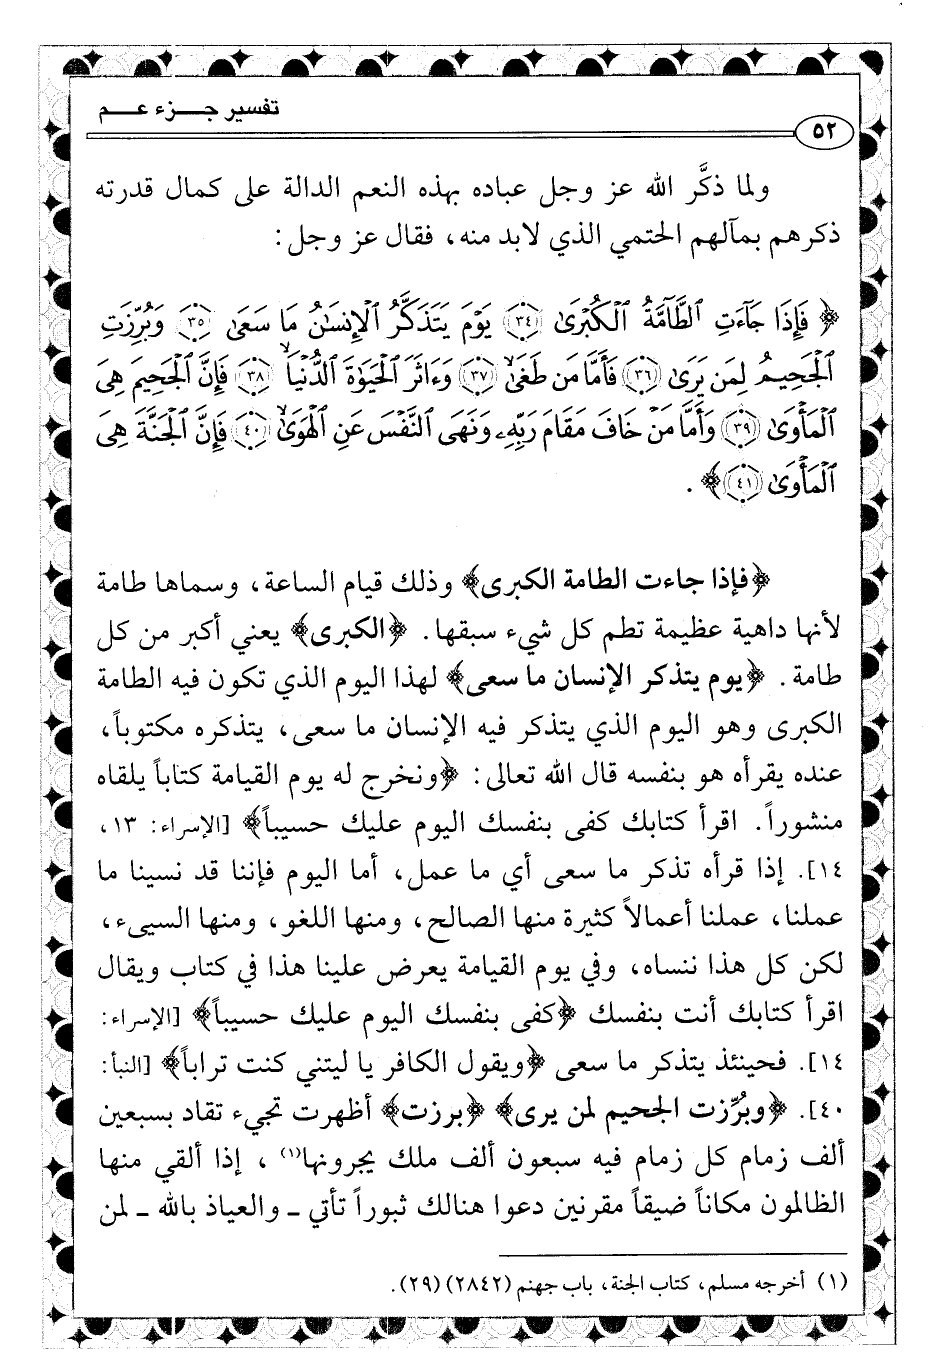 تفسير جـــزء عـــم
٥٢
ولما ذكَّر الله عز وجل عباده بهذه النعم الدالة على كمال قدرته
ذكرهم بمآلهم الحتمي الذي لابد منه، فقال عز وجل:
﴿ فَإِذَا جَآءَتِ ٱلطَّآمَّةُ ٱلْكُبْرَىٰ ﴿٣٤﴾ يَوْمَ يَتَذَكَّرُ ٱلْإِنسَٰنُ مَا سَعَىٰ ﴿٣٥﴾ وَبُرِّزَتِ
ٱلْجَحِيمُ لِمَن يَرَىٰ ﴿٣٦﴾ فَأَمَّا مَن طَغَىٰ ﴿٣٧﴾ وَءَاثَرَ ٱلْحَيَوٰةَ ٱلدُّنْيَا ﴿٣٨﴾ فَإِنَّ ٱلْجَحِيمَ هِىَ
ٱلْمَأْوَىٰ ﴿٣٩﴾ وَأَمَّا مَنْ خَافَ مَقَامَ رَبِّهِۦ وَنَهَى ٱلنَّفْسَ عَنِ ٱلْهَوَىٰ ﴿٤٠﴾ فَإِنَّ ٱلْجَنَّةَ هِىَ
ٱلْمَأْوَىٰ ﴿٤١﴾ ﴾ .
﴿فإذا جاءت الطامة الكبرى﴾ وذلك قيام الساعة، وسماها طامة
لأنها داهية عظيمة تطم كل شيء سبقها. ﴿الكبرى﴾ يعني أكبر من كل
طامة. ﴿يوم يتذكر الإنسان ما سعى﴾ لهذا اليوم الذي تكون فيه الطامة
الكبرى وهو اليوم الذي يتذكر فيه الإنسان ما سعى، يتذكره مكتوباً،
عنده يقرأه هو بنفسه قال الله تعالى: ﴿ونخرج له يوم القيامة كتاباً يلقاه
منشوراً. اقرأ كتابك كفى بنفسك اليوم عليك حسيباً﴾ [الإسراء: ١٣،
١٤]. إذا قرأه تذكر ما سعى أي ما عمل، أما اليوم فإننا قد نسينا ما
عملنا، عملنا أعمالاً كثيرة منها الصالح، ومنها اللغو، ومنها السيىء،
لكن كل هذا ننساه، وفي يوم القيامة يعرض علينا هذا في كتاب ويقال
اقرأ كتابك أنت بنفسك ﴿كفى بنفسك اليوم عليك حسيباً﴾ [الإسراء:
١٤]. فحينئذ يتذكر ما سعى ﴿ويقول الكافر يا ليتني كنت تراباً﴾ [النبأ:
٤٠]. ﴿وبُرِّزت الجحيم لمن يرى﴾ ﴿برزت﴾ أظهرت تجيء تقاد بسبعين
ألف زمام كل زمام فيه سبعون ألف ملك يجرونها(١)، إذا ألقي منها
الظالمون مكاناً ضيقاً مقرنين دعوا هنالك ثبوراً تأتي ـ والعياذ بالله ـ لمن
(١) أخرجه مسلم، كتاب الجنة، باب جهنم (٢٨٤٢) (٢٩).